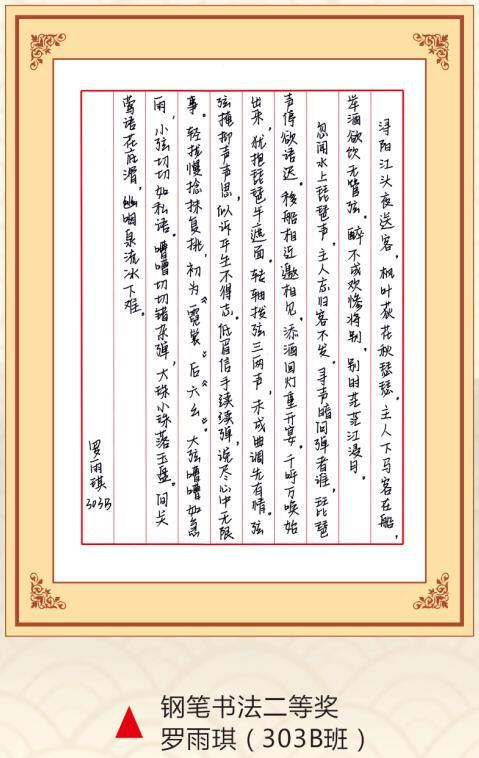 浔阳江头夜送客，枫叶荻花秋瑟瑟。主人下马客在船，
举酒欲饮无管弦。醉不成欢惨将别，别时茫茫江浸月。
忽闻水上琵琶声，主人忘归客不发。寻声暗问弹者谁，琵琶
声停欲语迟。移船相近邀相见，添酒回灯重开宴。千呼万唤始
出来，犹抱琵琶半遮面。转轴拨弦三两声，未成曲调先有情。弦
弦掩抑声声思，似诉平生不得志。低眉信手续续弹，说尽心中无限
事。轻拢慢捻抹复挑，初为《霓裳》后六幺。大弦嘈嘈如急
雨，小弦切切如私语。嘈嘈切切错杂弹，大珠小珠落玉盘。间关
莺语花底滑，幽咽泉流冰下难。
罗雨琪
303B
钢笔书法二等奖
罗雨琪（303B班）